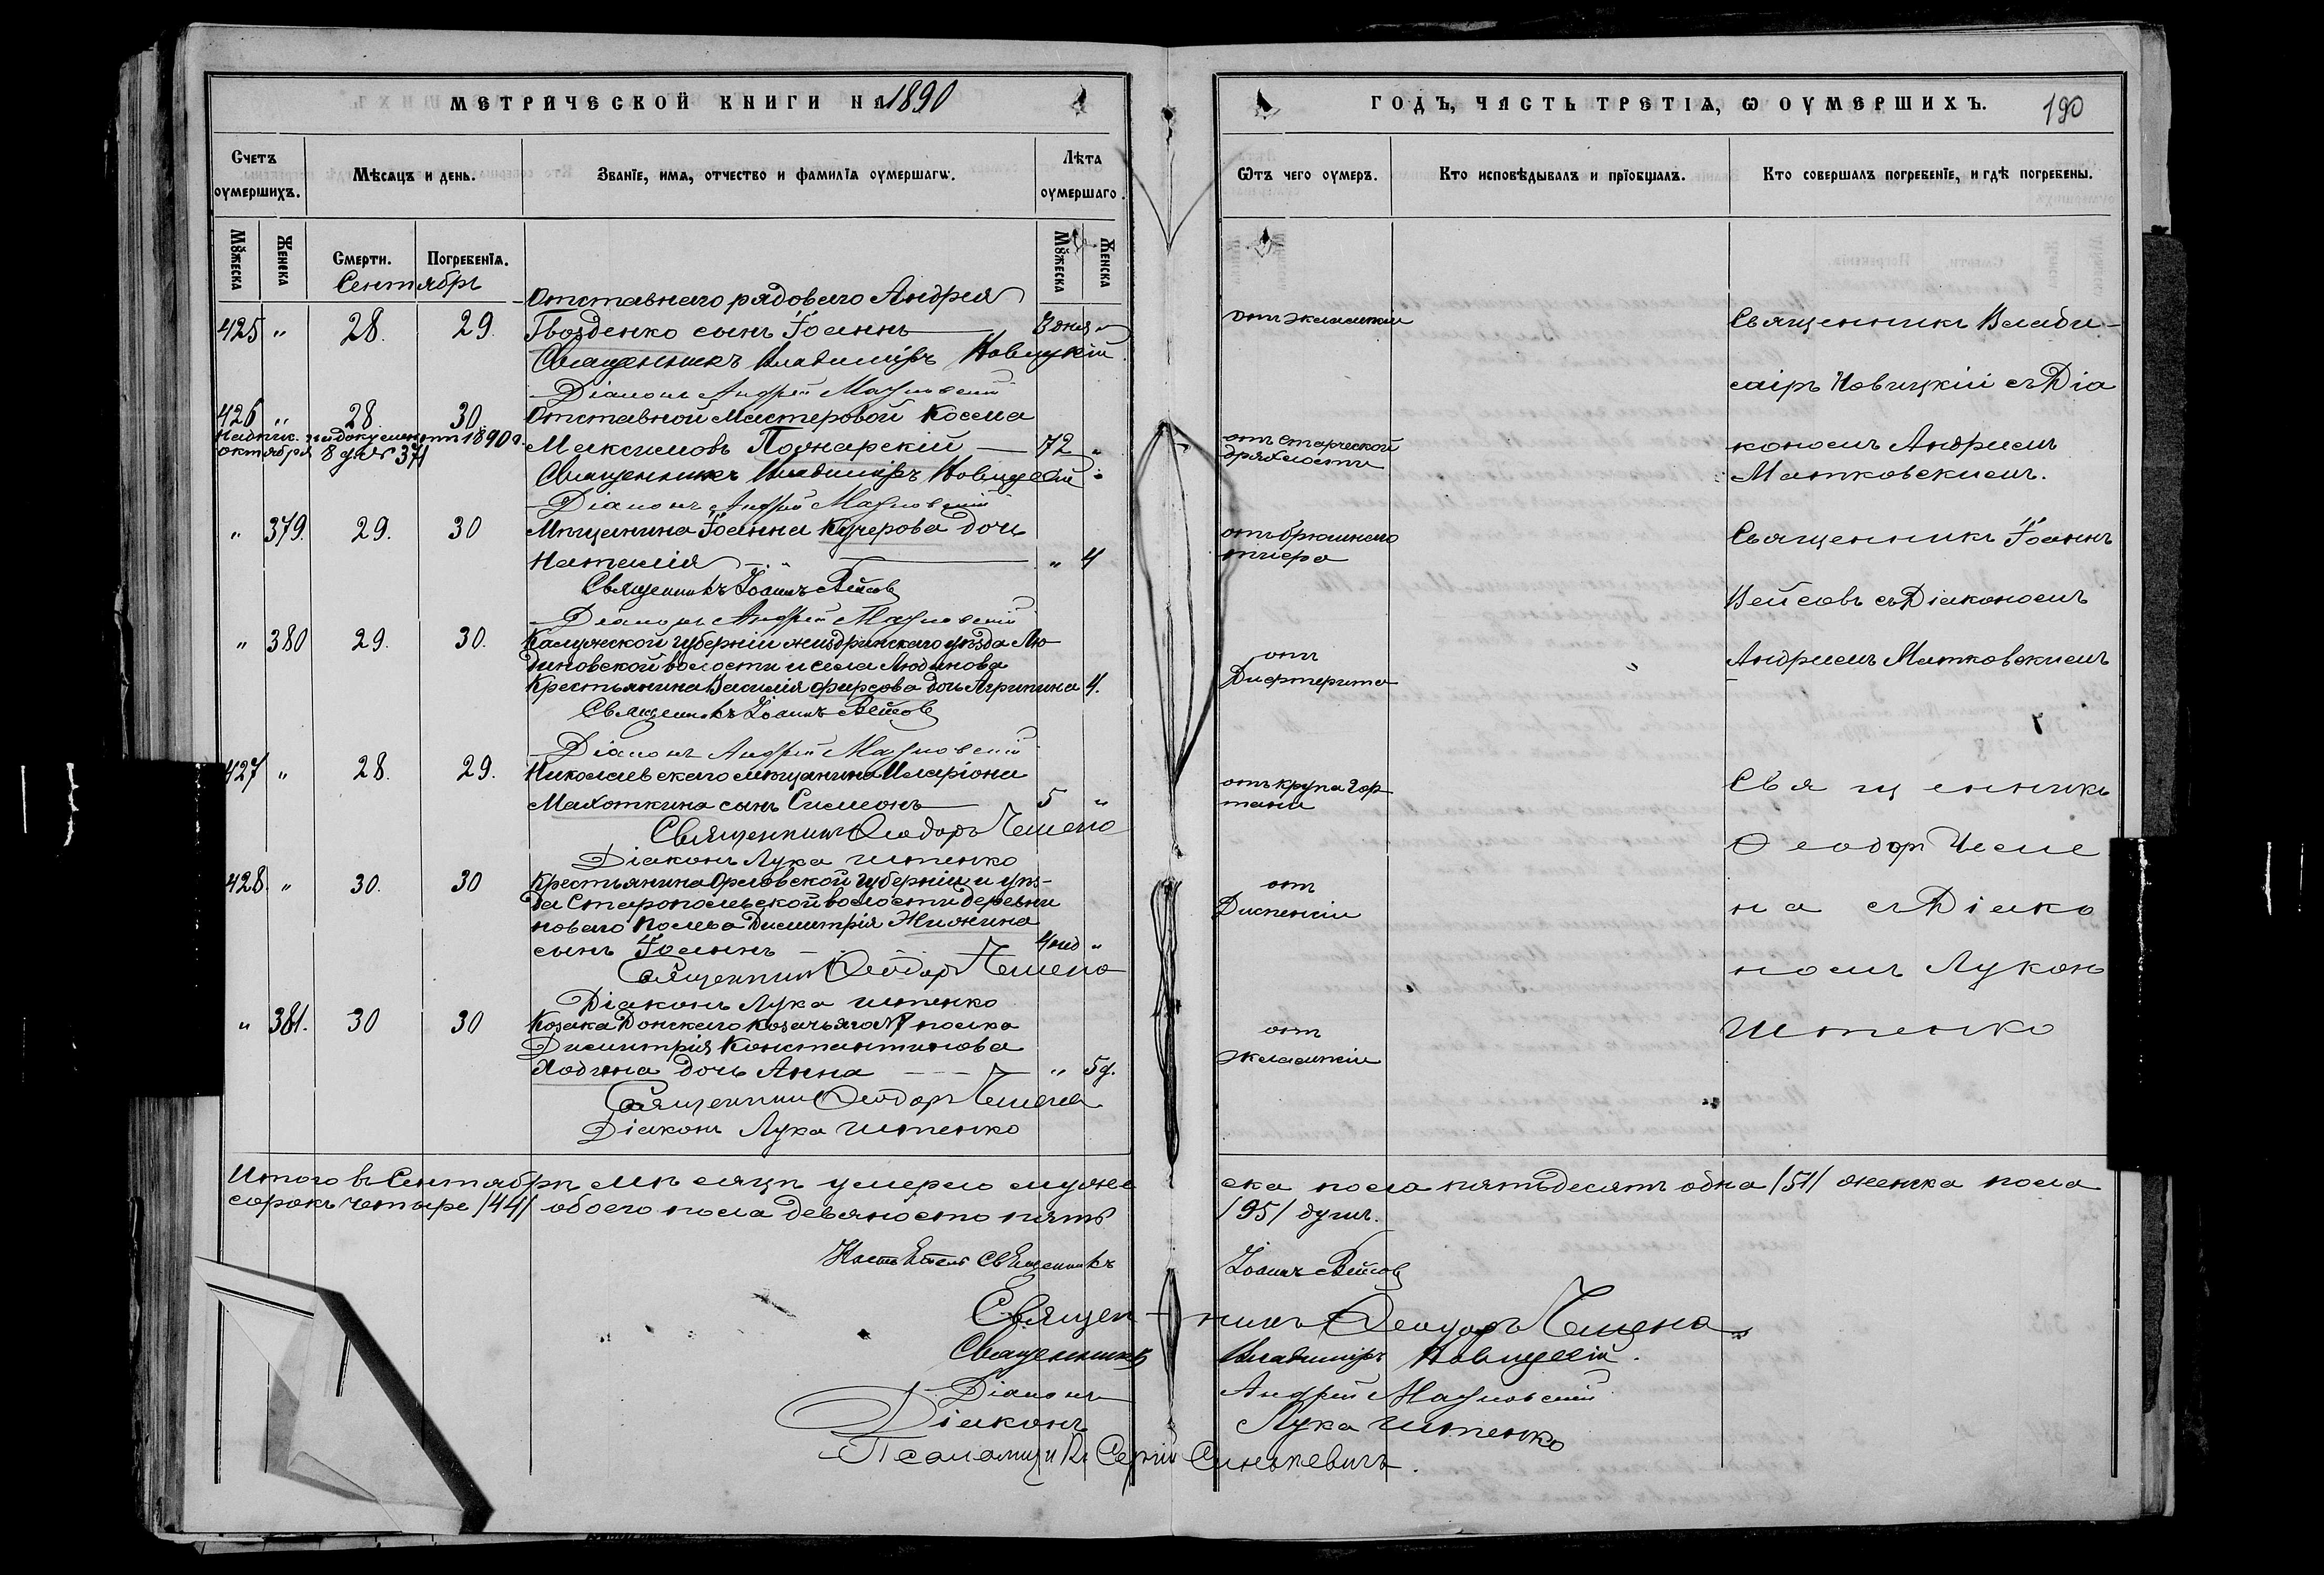 МЕТРИЧЕСКОЙ КНИГИ НА 1890
Счетъ оумершихъ.
Мѣсяцъ и день.
Званіе, имя, отчество и фамилія оумершагѡ.
Лѣта оумершаго.
Мꙋжеска
Женска
Смерти.
Погребенія.
Мꙋжеска
Женска
Сентябрь
Отставнаго рядоваго Андрея
425 " 28. 29. Гвозденко сынъ Іоаннъ 3 дня "
Священникъ Владиміръ Новицкій
Діаконъ Андрей Матковскій
426 " 28. 30. Отставной Мастеровой Косма
Максимовъ Пожарскій 72 "
октября 8 дня № 371
Священникъ Владиміръ Новицкій
Діаконъ Андрей Матковскій
" 379. 29. 30 Мѣщанина Іоанна Кучерова дочь
Наталія " 4
Священникъ Іоаннъ Вейсовъ
Діаконъ Андрей Матковскій
" 380 29. 30. Калужской губерніи Жиздринскаго уѣзда Лю
диновской волости и села Людинова
Крестьянина Василія Фирсова дочь Агрипина 4.
Священникъ Іоаннъ Вейсовъ
Діаконъ Андрей Матковскій
427 " 28. 29. Николаевскаго мѣщанина Иларіона
Махоткина сынъ Симеонъ 5 "
Священникъ Ѳеодоръ Чемена
Діаконъ Лука Штенко
428. " 30. 30 Крестьянина Орловской губерніи и уѣз-
да Старопольской волости деревни
сынъ Іоаннъ 4 нед "
Священникъ Ѳеодоръ Чемена
Діаконъ Лука Штенко
" 381. 30 30 Козака Донскаго Козачьяго № 7 полка
Димитрія Константинова
Ходина дочь Анна " 5 д.
Священникъ Ѳеодоръ Чемена
Діаконъ Лука Штенко
Итого въ Сентябрѣ мѣсяцѣ умерло муже
сорокъ четыре /44/ обоего пола девяносто пять
Настоятель Священникъ
Священ
Священникъ
Діаконъ
Діаконъ
Псаломщикъ Сергій
ГОДЪ, ЧАСТЬ ТРЕТІА, Ѡ ОУМЕРШИХЪ. 190
Ѿтъ чего оумеръ.
Кто исповѣдывалъ и пріобщалъ.
Кто совершалъ погребеніе, и гдѣ погребены.
отъ эклампсіи
Священникъ Влади-
міръ Новицкій съ Діа
отъ старческой
дряхлости
кономъ Андреемъ
Матковскимъ.
отъ брюшнаго
тифа
Священникъ Іоаннъ
Вейсовъ съ Діакономъ
отъ
Дифтерита
Андреемъ Матковскимъ
отъ крупа гор
тани
Священникъ
Ѳеодоръ Чеме
отъ
Диспепсіи
на съ Діако
номъ Лукою
отъ
эклампсіи
Штенко
ска пола пятьдесятъ одна /51/ женска пола
/95/ душъ.
Іоаннъ Вейсовъ
никъ Ѳеодоръ Чемена
Владиміръ Новицкій.
Андрей Матковскій
Лука Штенко
Синькевичъ.